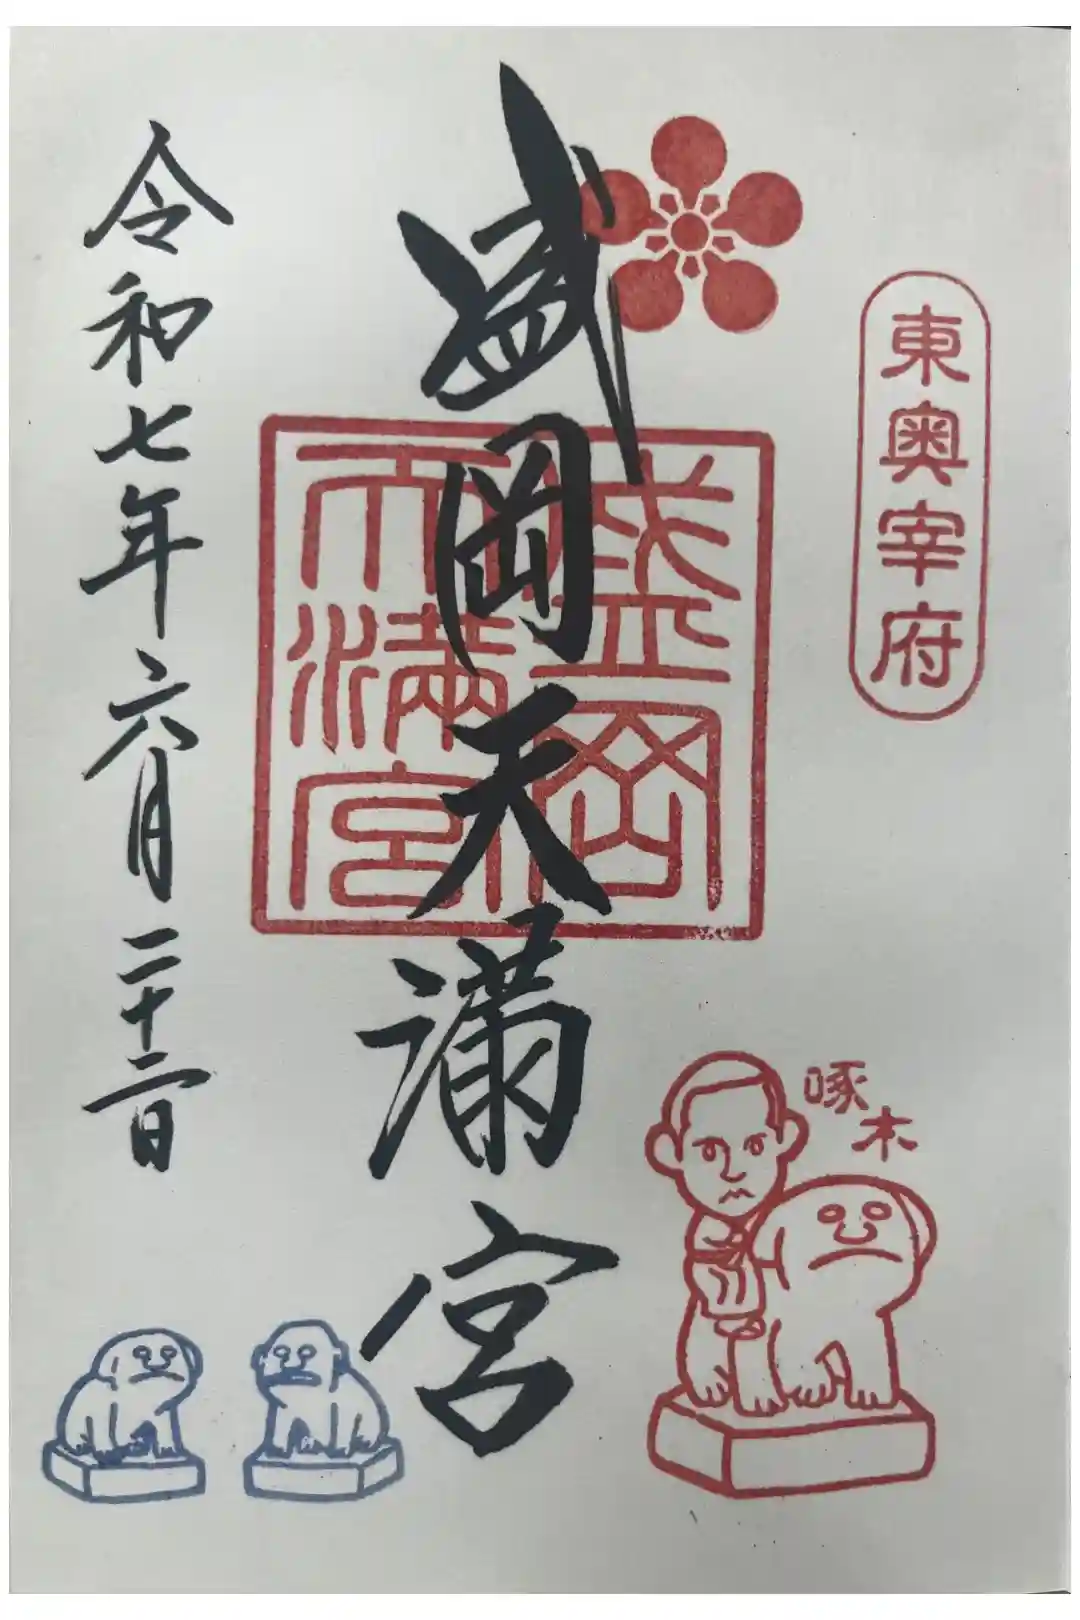 東奥宰府
盛岡天満宮
盛岡
天満宮
啄木
令和七年六月二十二日